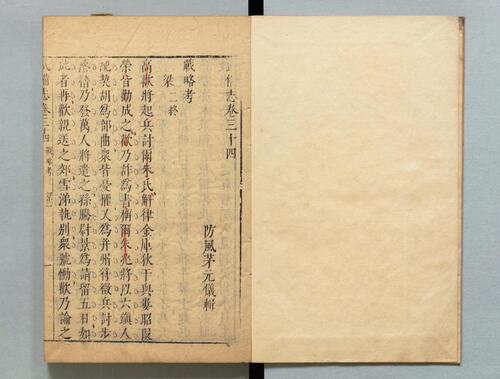 武備志卷三十四
防風茅元儀輯
戰略考
梁二終
高歡將起兵討爾朱氏斛律金厙狄干與婁昭段
榮皆勸成之歡乃詐為書稱爾朱兆將以六鎮人
配契胡為部曲衆皆憂懼又為并州符徵兵討步
落稽乃發萬人將遣之孫騰尉景為請留五日如
此者再歡親送之郊雪涕執別衆號慟歡乃諭之
武備志卷三十四 戰略考